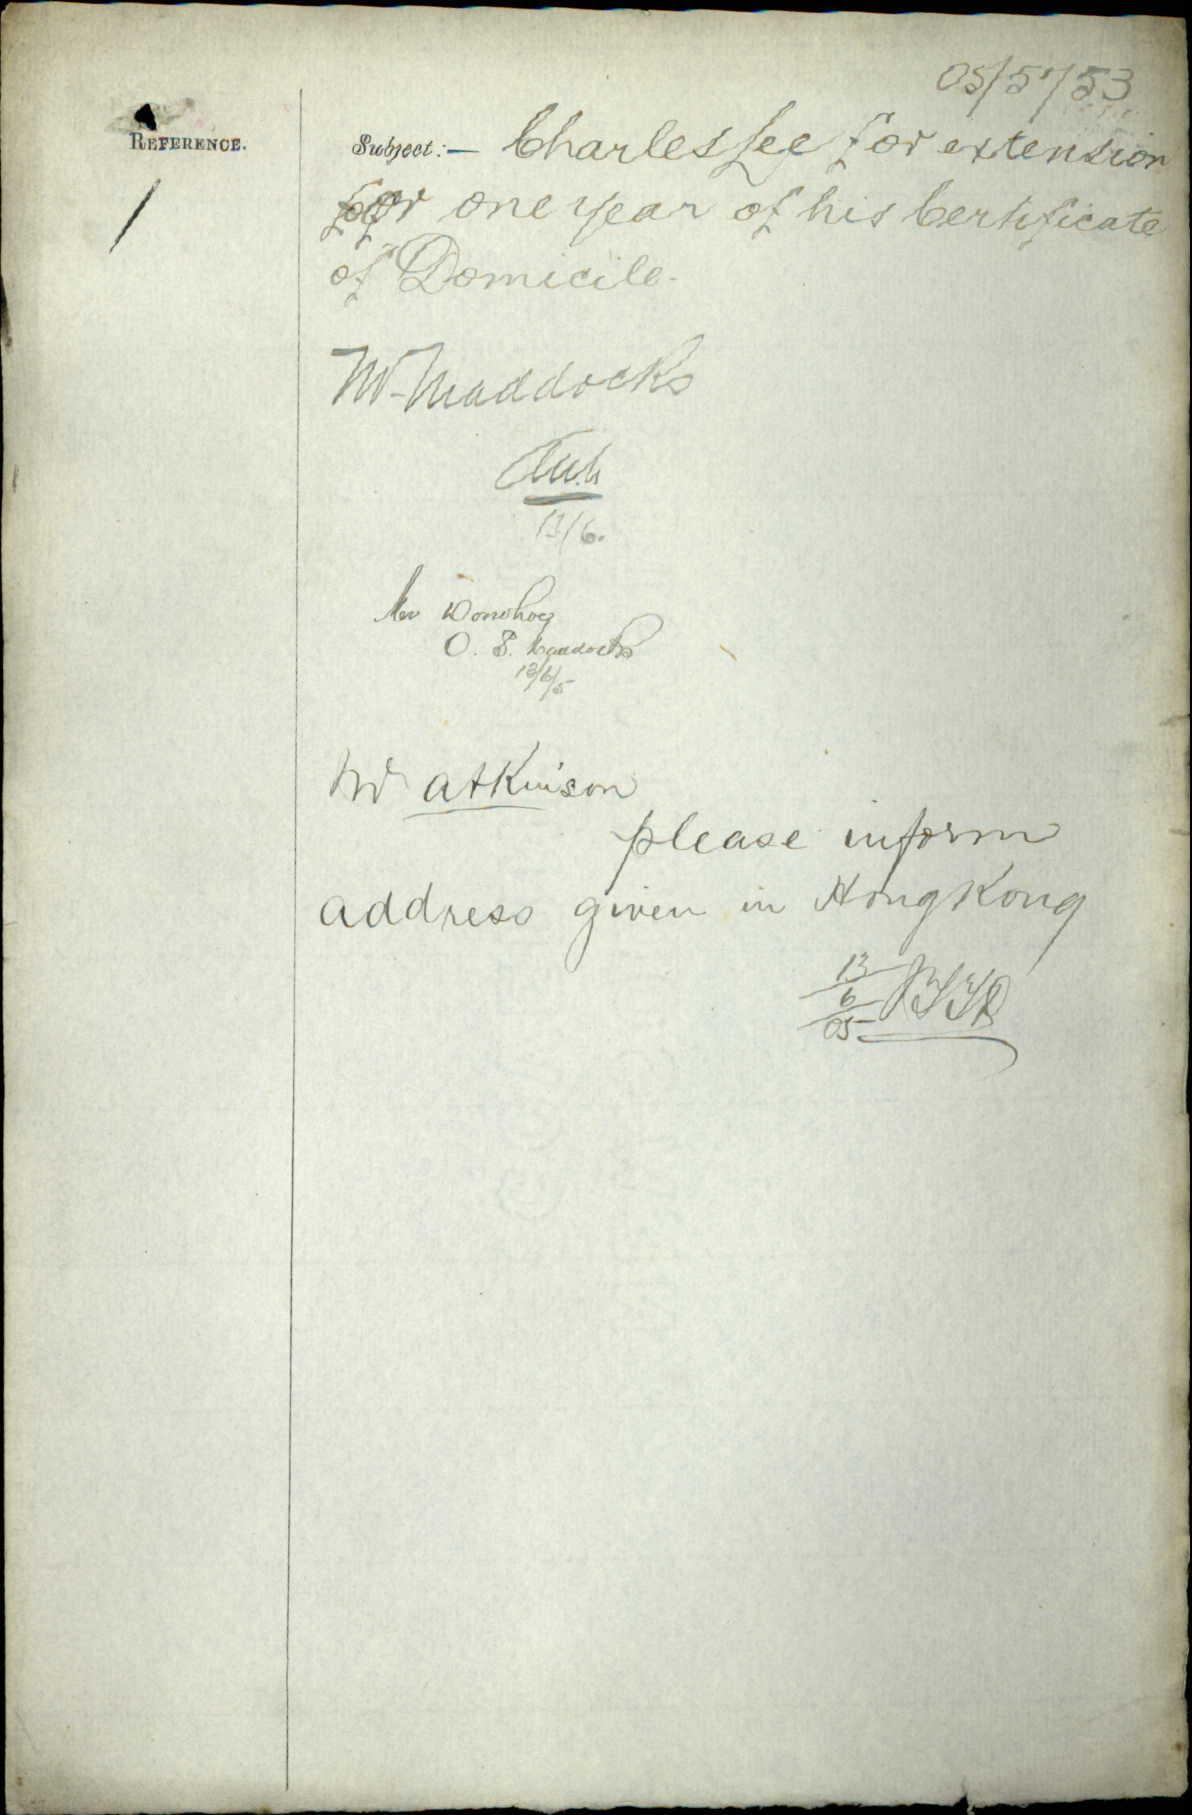 05/5753
REFERENCE.
Subject:— Charles Lee for extension
for one year of his Certificate
of Domicile.
1
Mr Maddocks
13/6.
Mr Donohoe
O. S. Maddocks
13/6/5
Mr Atkinson
please inform
address given in Hong Kong
13
6
05